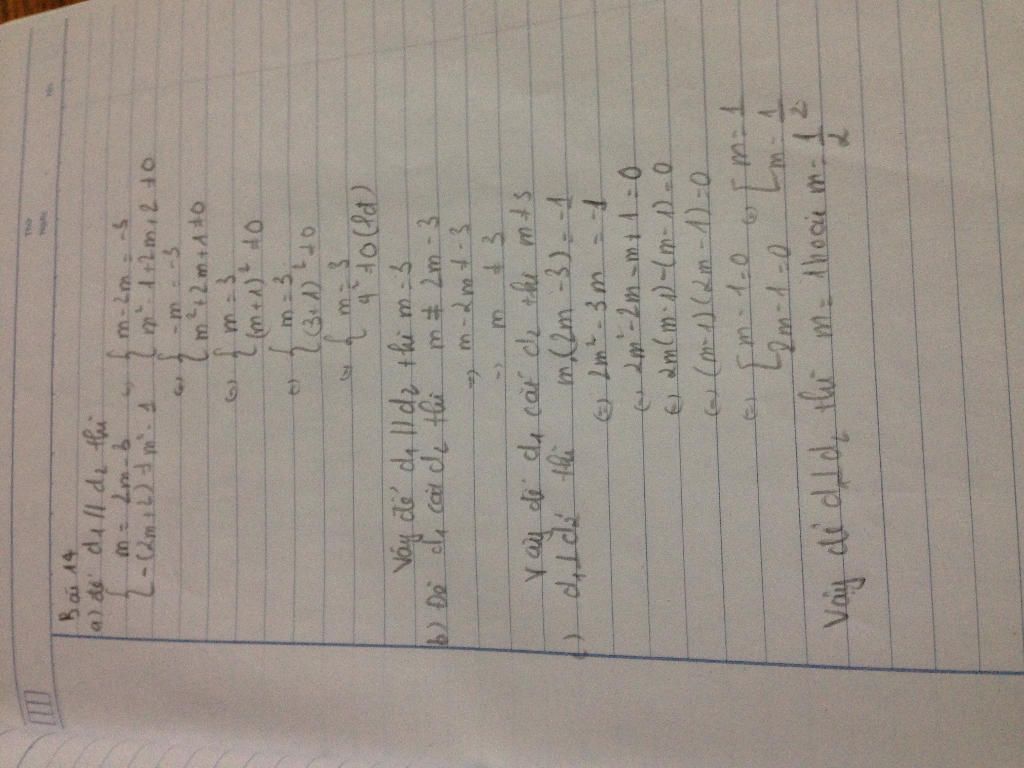 Bài 14
a) để d₁ // d₂ thì
{ m = 2m - 3 ⇔ { m - 2m = -3
{ -(2m+2) ≠ m² - 1 { m² - 1 + 2m + 2 ≠ 0
⇔ { -m = -3
{ m² + 2m + 1 ≠ 0
⇔ { m = 3
{ (m+1)² ≠ 0
⇔ { m = 3
{ (3+1)² ≠ 0
⇔ { m = 3
{ 4² ≠ 0 (lđ)
Vậy để d₁ // d₂ thì m = 3
b) Để d₁ cắt d₂ thì m ≠ 2m - 3
⇒ m - 2m ≠ -3
⇒ m ≠ 3
Vậy để d₁ cắt d₂ thì m ≠ 3
c) d₁ ⊥ d₂ thì m(2m - 3) = -1
⇔ 2m² - 3m = -1
⇔ 2m² - 2m - m + 1 = 0
⇔ 2m(m-1) - (m-1) = 0
⇔ (m-1)(2m-1) = 0
⇔ [ m - 1 = 0 ⇔ [ m = 1
[ 2m - 1 = 0 [ m = 1/2
Vậy để d₁ ⊥ d₂ thì m = 1 hoặc m = 1/2